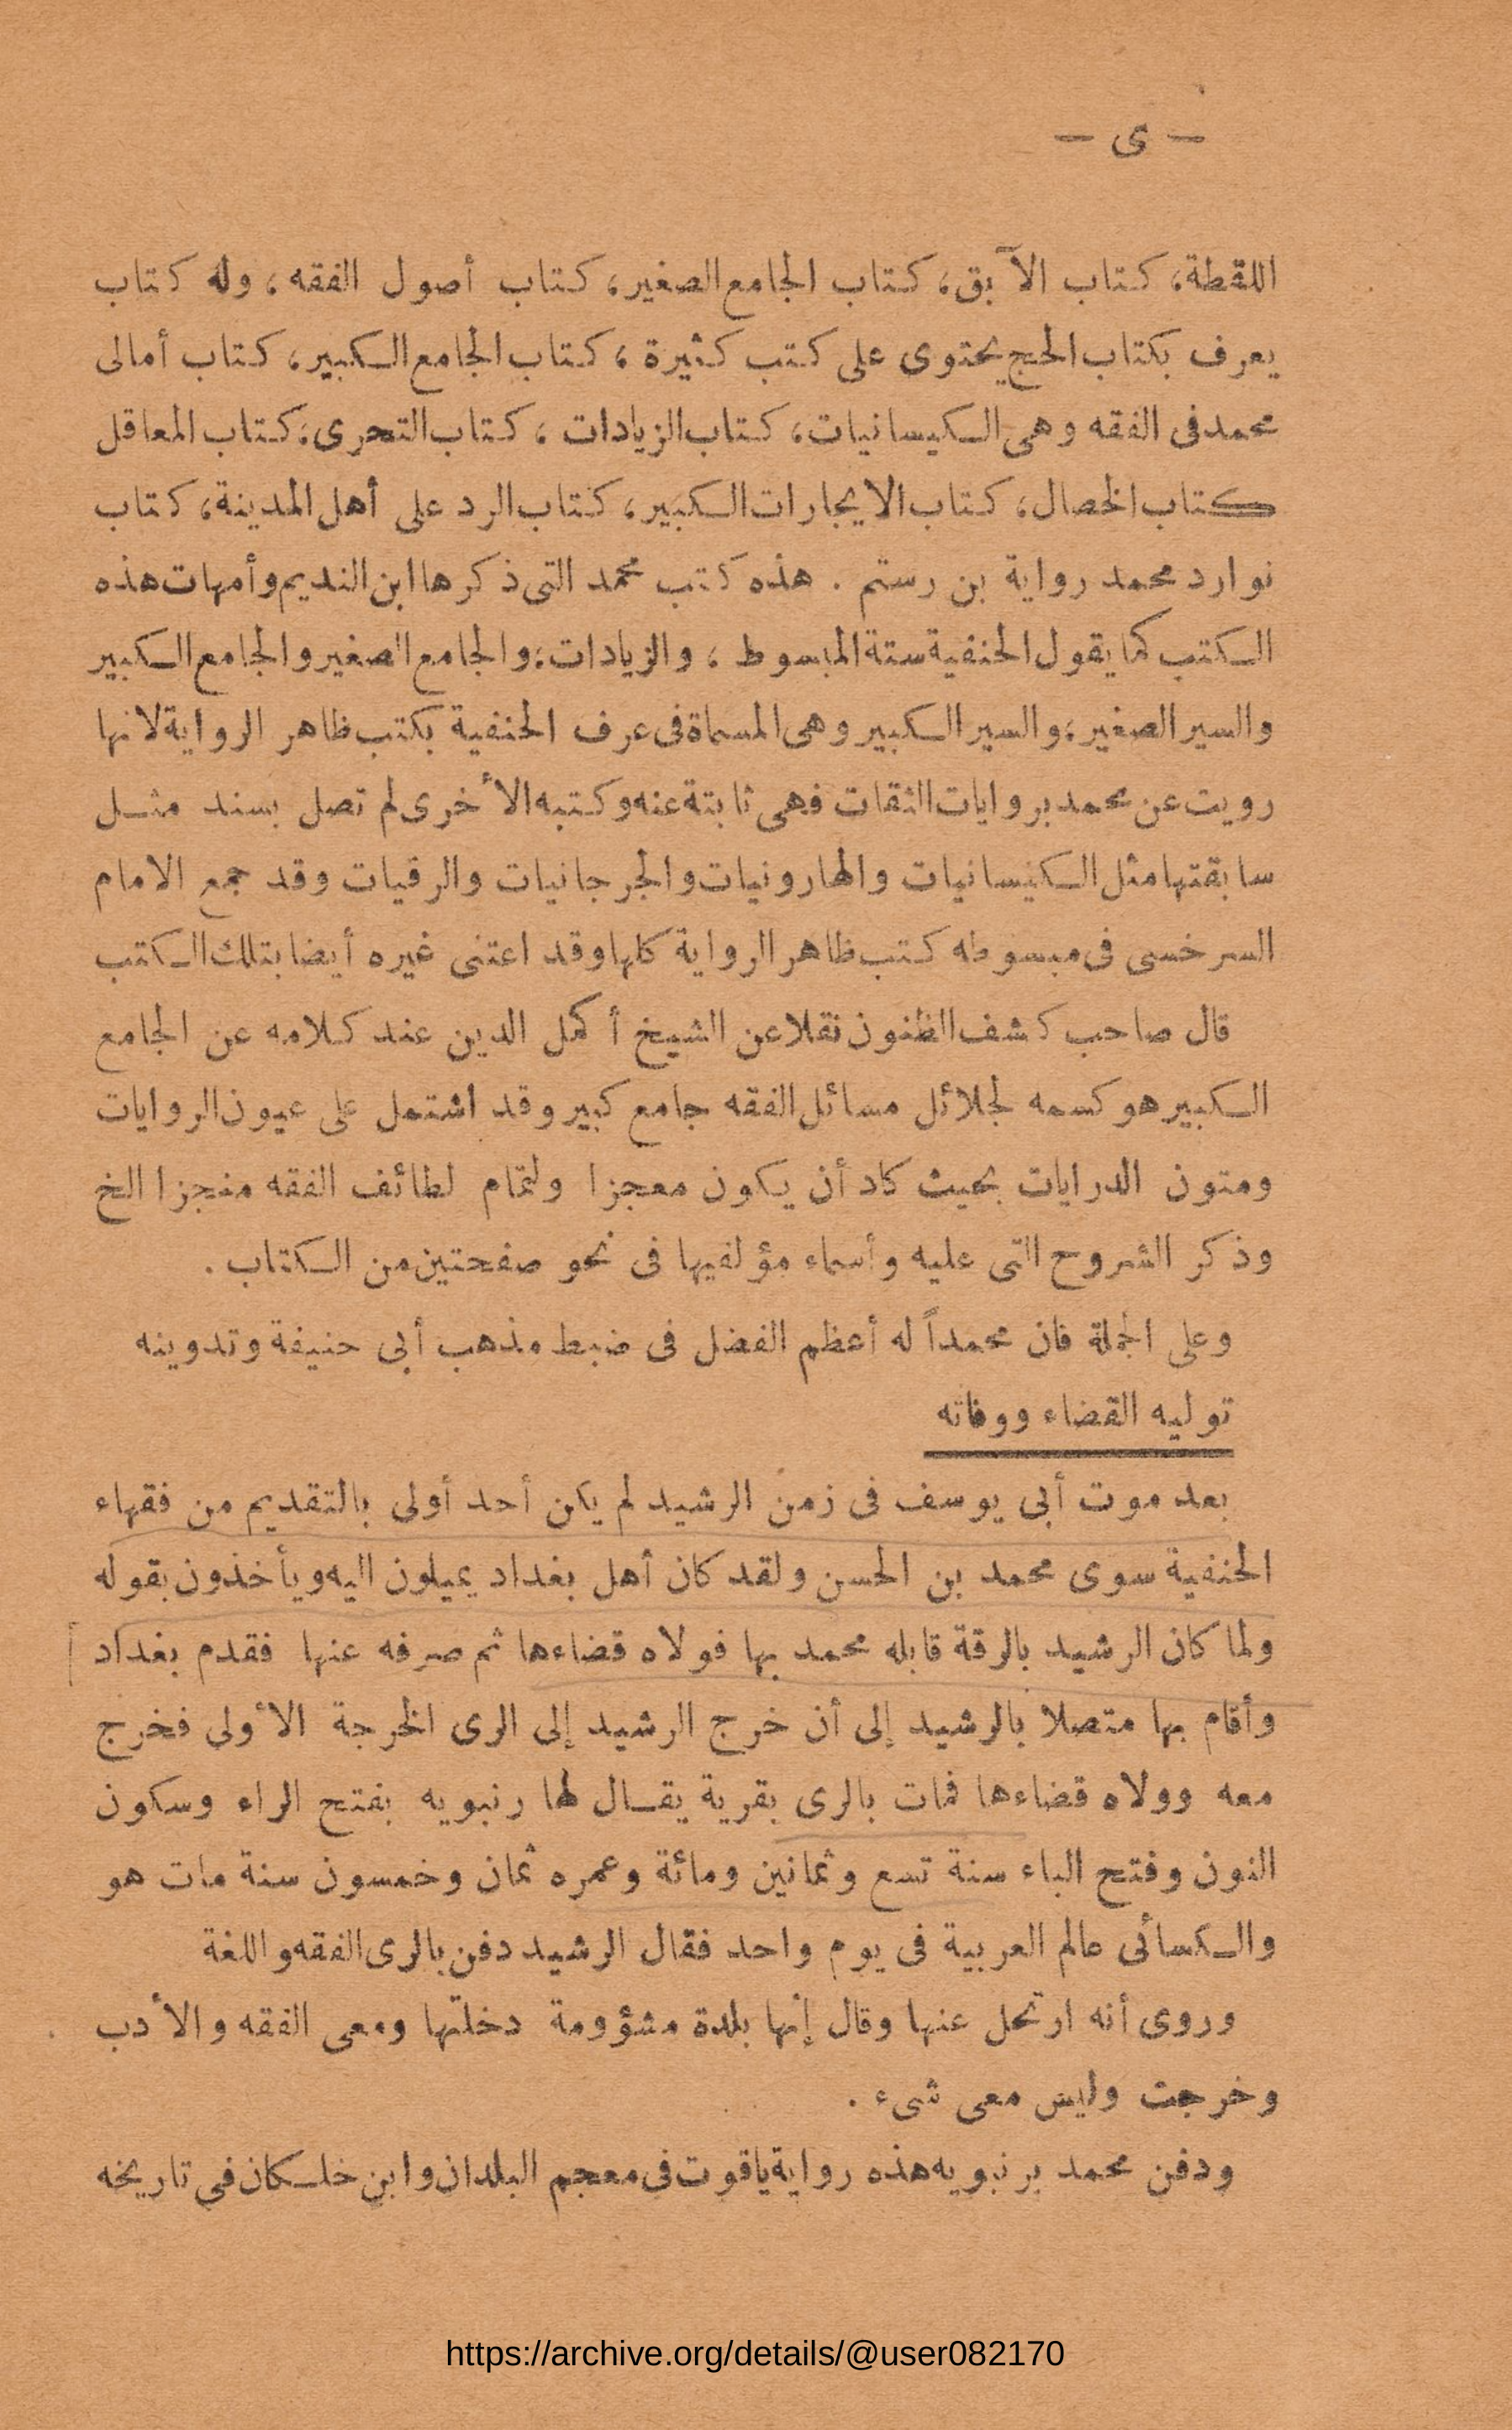 — ى —
اللقطة، كتاب الآبق، كتاب الجامع الصغير، كتاب أصول الفقه، وله كتاب
يعرف بكتاب الحج يحتوى على كتب كثيرة، كتاب الجامع الكبير، كتاب أمالى
محمد فى الفقه وهى الكيسانيات، كتاب الزيادات، كتاب التحرى، كتاب المعاقل
كتاب الخصال، كتاب الايجارات الكبير، كتاب الرد على أهل المدينة، كتاب
نوارد محمد رواية بن رستم . هذه كتب محمد التى ذكرها ابن النديم وأمهات هذه
الكتب كما يقول الحنفية ستة المبسوط، والزيادات، والجامع الصغير والجامع الكبير
والسير الصغير، والسير الكبير وهى المسماة فى عرف الحنفية بكتب ظاهر الرواية لانها
رويت عن محمد بروايات الثقات فهى ثابتة عنه وكتبه الأخرى لم تصل بسند مثل
سابقتها مثل الكيسانيات والهارونيات والجرجانيات والرقيات وقد جمع الامام
السرخسى فى مبسوطه كتب ظاهر الرواية كلها وقد اعتنى غيره أيضا بتلك الكتب
قال صاحب كشف الظنون نقلا عن الشيخ أكمل الدين عند كلامه عن الجامع
الكبير هو كسمه لجلائل مسائل الفقه جامع كبير وقد اشتمل على عيون الروايات
ومتون الدرايات بحيث كاد أن يكون معجزا ولتمام لطائف الفقه منجزا الخ
وذكر الشروح التى عليه وأسماء مؤلفيها فى نحو صفحتين من الكتاب .
وعلى الجملة فان محمداً له أعظم الفضل فى ضبط مذهب أبى حنيفة وتدوينه
توليه القضاء ووفاته
بعد موت أبى يوسف فى زمن الرشيد لم يكن أحد أولى بالتقديم من فقهاء
الحنفية سوى محمد بن الحسن ولقد كان أهل بغداد يميلون اليه ويأخذون بقوله
ولما كان الرشيد بالرقة قابله محمد بها فولاه قضاءها ثم صرفه عنها فقدم بغداد
وأقام بها متصلا بالرشيد إلى أن خرج الرشيد إلى الرى الخرجة الأولى فخرج
معه وولاه قضاءها فمات بالرى بقرية يقال لها رنبويه بفتح الراء وسكون
النون وفتح الباء سنة تسع وثمانين ومائة وعمره ثمان وخمسون سنة مات هو
والكسائى عالم العربية فى يوم واحد فقال الرشيد دفن بالرى الفقه واللغة
وروى أنه ارتحل عنها وقال إنها بلدة مشؤومة دخلتها ومعى الفقه والأدب
وخرجت وليس معى شىء .
ودفن محمد برنبويه هذه رواية ياقوت فى معجم البلدان وابن خلكان في تاريخه
https://archive.org/details/@user082170